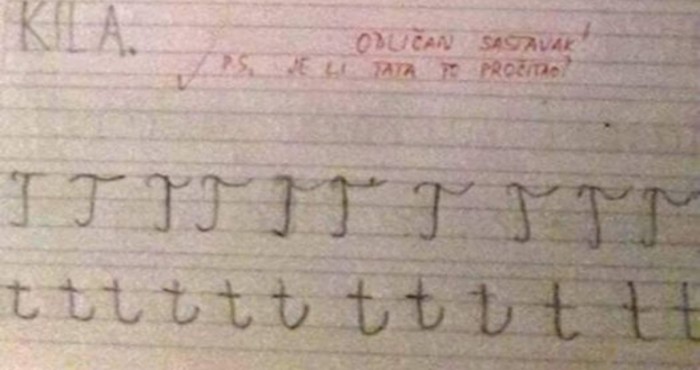 KILA.
ODLIČAN SASTAVAK!
P.S. JE LI TATA TO PROČITAO?
T T T T T T T T T T
t t t t t t t t t t t t